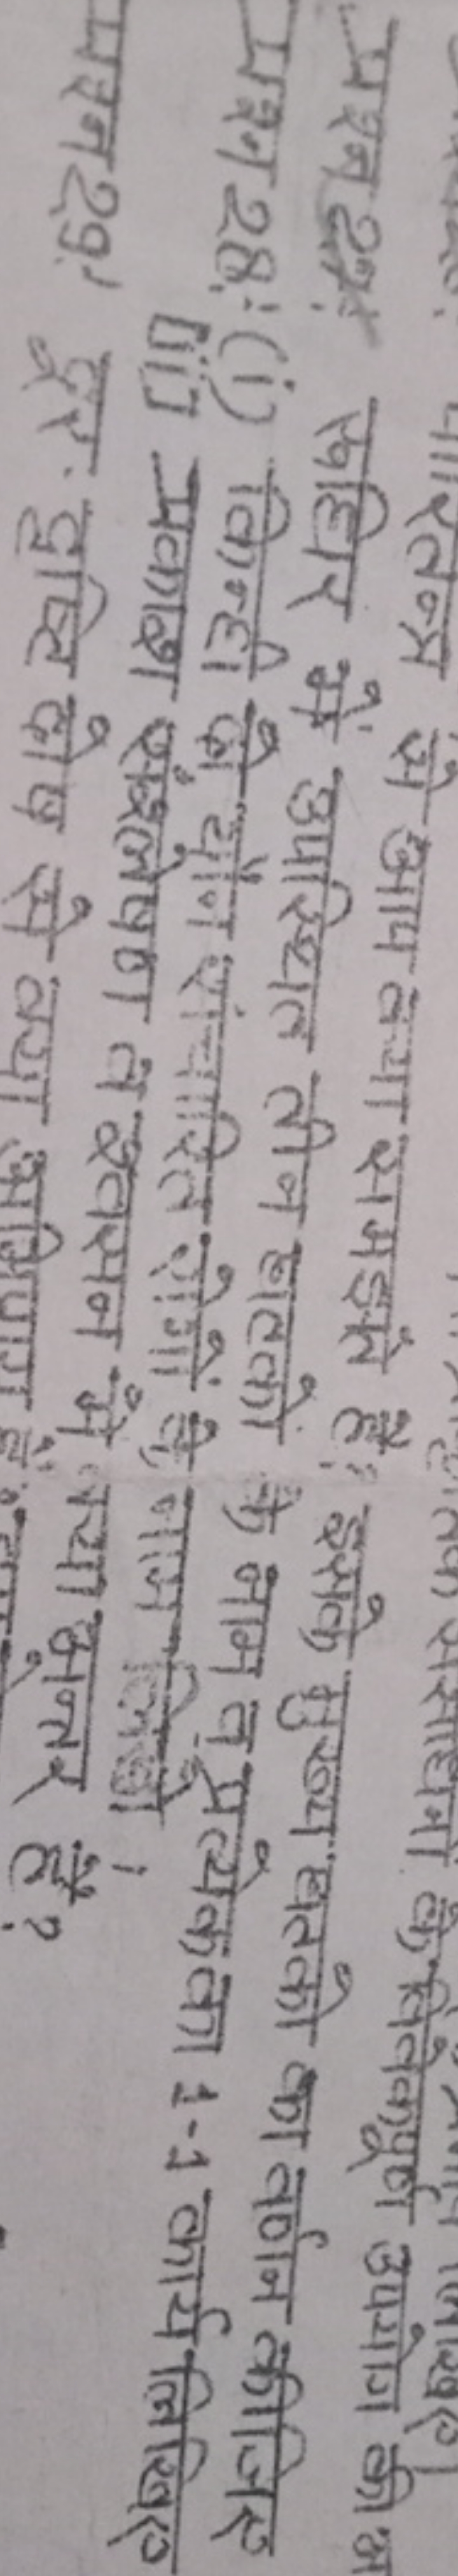 के विवेकपूर्ण उपयोग की
पारितन्त्र से आप क्या समझते हैं? इसके मुख्य घटकों का वर्णन कीजिए
प्रश्न 27: रूधिर में उपस्थित तीन घटकों के नाम व प्रत्येक का 1-1 कार्य लिखिए
प्रश्न 28: (i) किन्ही दो यौन संचारित रोगों के नाम लिखो।
(ii) प्रकाश संश्लेषण व श्वसन में क्या अन्तर है?
प्रश्न 29: दूर दृष्टि दोष से क्या अभिप्राय है?